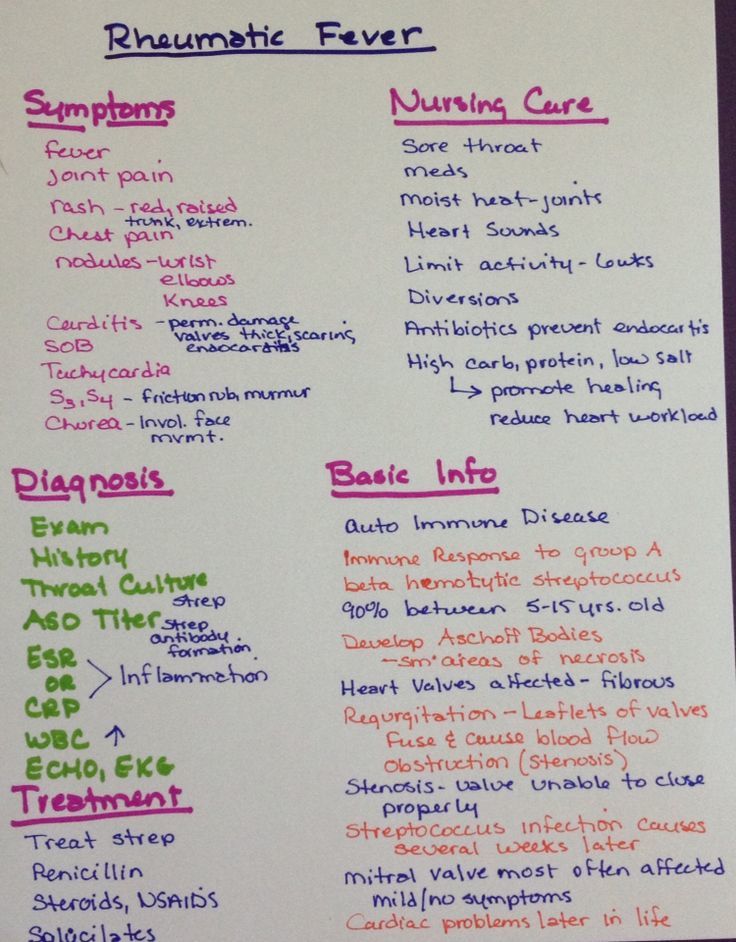 Rheumatic Fever
Symptoms
fever
Joint pain
rash - red, raised
trunk, extrem.
Chest pain
nodules - wrist
elbows
Knees
Carditis - perm. damage
valves thick, scaring
endocarditis
SOB
Tachycardia
S3, S4 - friction rub, murmur
Chorea - Invol. face
mvmt.
Nursing Care
Sore throat
meds
moist heat - joints
Heart Sounds
Limit activity - 6wks
Diversions
Antibiotics prevent endocartis
High carb, protein, low salt
↳ promote healing
reduce heart workload
Diagnosis
Exam
History
Throat Culture
strep
ASO Titer
strep
antibody
formation
ESR
OR > Inflammation
CRP
WBC ↑
ECHO, EKG
Treatment
Treat strep
Penicillin
Steroids, NSAIDS
Salicilates
Basic Info
Auto Immune Disease
Immune Response to group A
beta hemolytic streptococcus
90% between 5-15 yrs. old
Develop Aschoff Bodies
- sm. areas of necrosis
Heart Valves affected - fibrous
Regurgitation - Leaflets of valves
Fuse & cause blood flow
obstruction (Stenosis)
Stenosis - valve unable to close
properly
Streptococcus infection causes
several weeks later
mitral valve most often affected
mild/no symptoms
Cardiac problems later in life